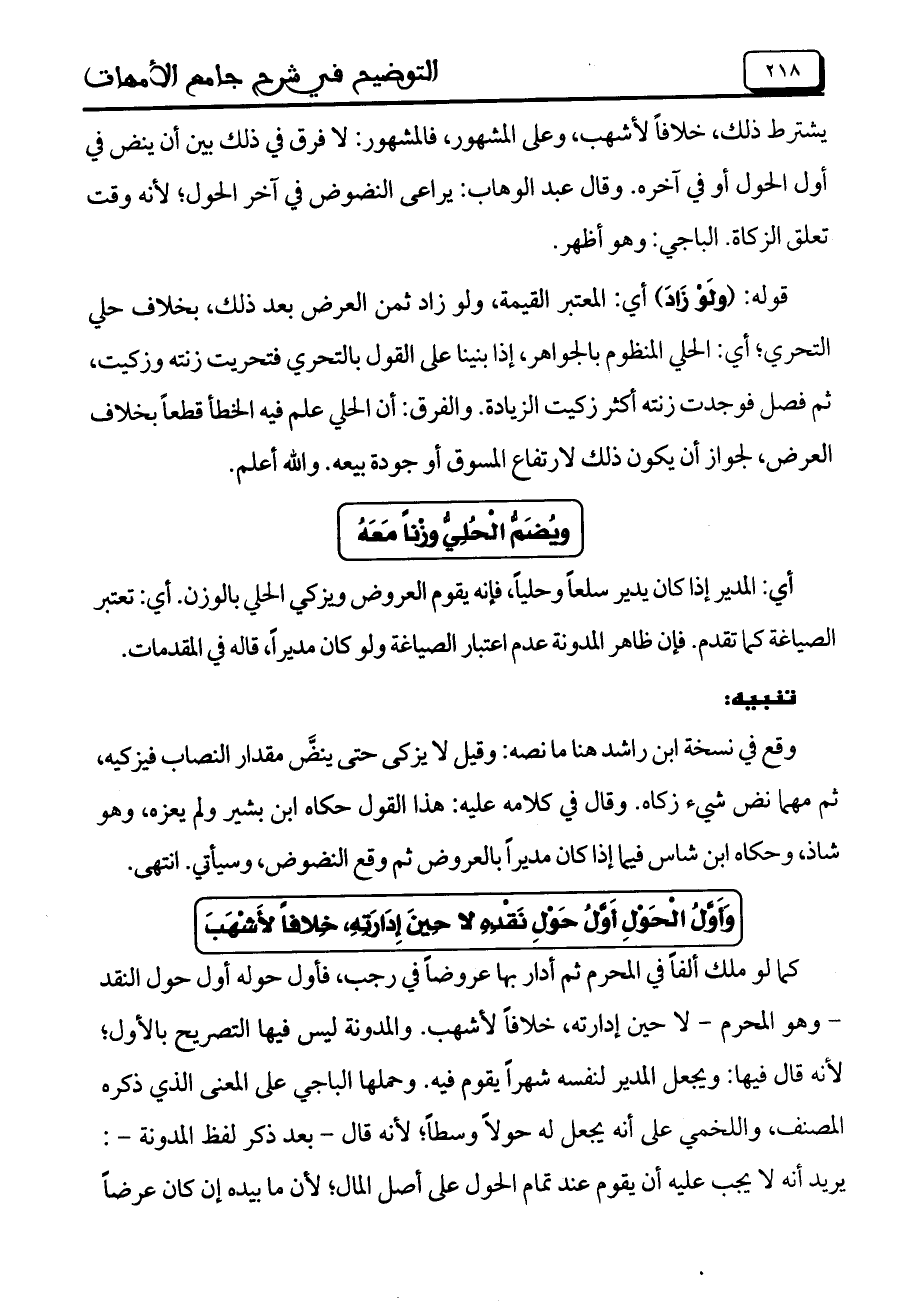 ٢١٨
التوضيح في شرح جامع الأمهات
يشترط ذلك، خلافاً لأشهب، وعلى المشهور، فالمشهور: لا فرق في ذلك بين أن ينض في
أول الحول أو في آخره. وقال عبد الوهاب: يراعى النضوض في آخر الحول؛ لأنه وقت
تعلق الزكاة. الباجي: وهو أظهر.
قوله: (ولَوْ زَادَ) أي: المعتبر القيمة، ولو زاد ثمن العرض بعد ذلك، بخلاف حلي
التحري؛ أي: الحلي المنظوم بالجواهر، إذا بنينا على القول بالتحري فتحريت زنته وزكيت،
ثم فصل فوجدت زنته أكثر زكيت الزيادة. والفرق: أن الحلي علم فيه الخطأ قطعاً بخلاف
العرض، لجواز أن يكون ذلك لارتفاع المسوق أو جودة بيعه. والله أعلم.
ويُضَمُّ الْحُلِيُّ وزْناً مَعَهُ
أي: المدير إذا كان يدير سلعاً وحلياً، فإنه يقوم العروض ويزكي الحلي بالوزن. أي: تعتبر
الصياغة كما تقدم. فإن ظاهر المدونة عدم اعتبار الصياغة ولو كان مديراً، قاله في المقدمات.
تنبيه:
وقع في نسخة ابن راشد هنا ما نصه: وقيل لا يزكى حتى ينضَّ مقدار النصاب فيزكيه،
ثم مهما نض شيء زكاه. وقال في كلامه عليه: هذا القول حكاه ابن بشير ولم يعزه، وهو
شاذ، وحكاه ابن شاس فيما إذا كان مديراً بالعروض ثم وقع النضوض، وسيأتي. انتهى.
وَأَوَّلُ الْحَوْلِ أَوَّلُ حَوْلِ نَقْدِهِ لا حِينَ إِدَارَتِهِ، خلافاً لأَشْهَبَ
كما لو ملك ألفاً في المحرم ثم أدار بها عروضاً في رجب، فأول حوله أول حول النقد
– وهو المحرم – لا حين إدارته، خلافاً لأشهب. والمدونة ليس فيها التصريح بالأول؛
لأنه قال فيها: ويجعل المدير لنفسه شهراً يقوم فيه. وحملها الباجي على المعنى الذي ذكره
المصنف، واللخمي على أنه يجعل له حولاً وسطاً؛ لأنه قال – بعد ذكر لفظ المدونة – :
يريد أنه لا يجب عليه أن يقوم عند تمام الحول على أصل المال؛ لأن ما بيده إن كان عرضاً